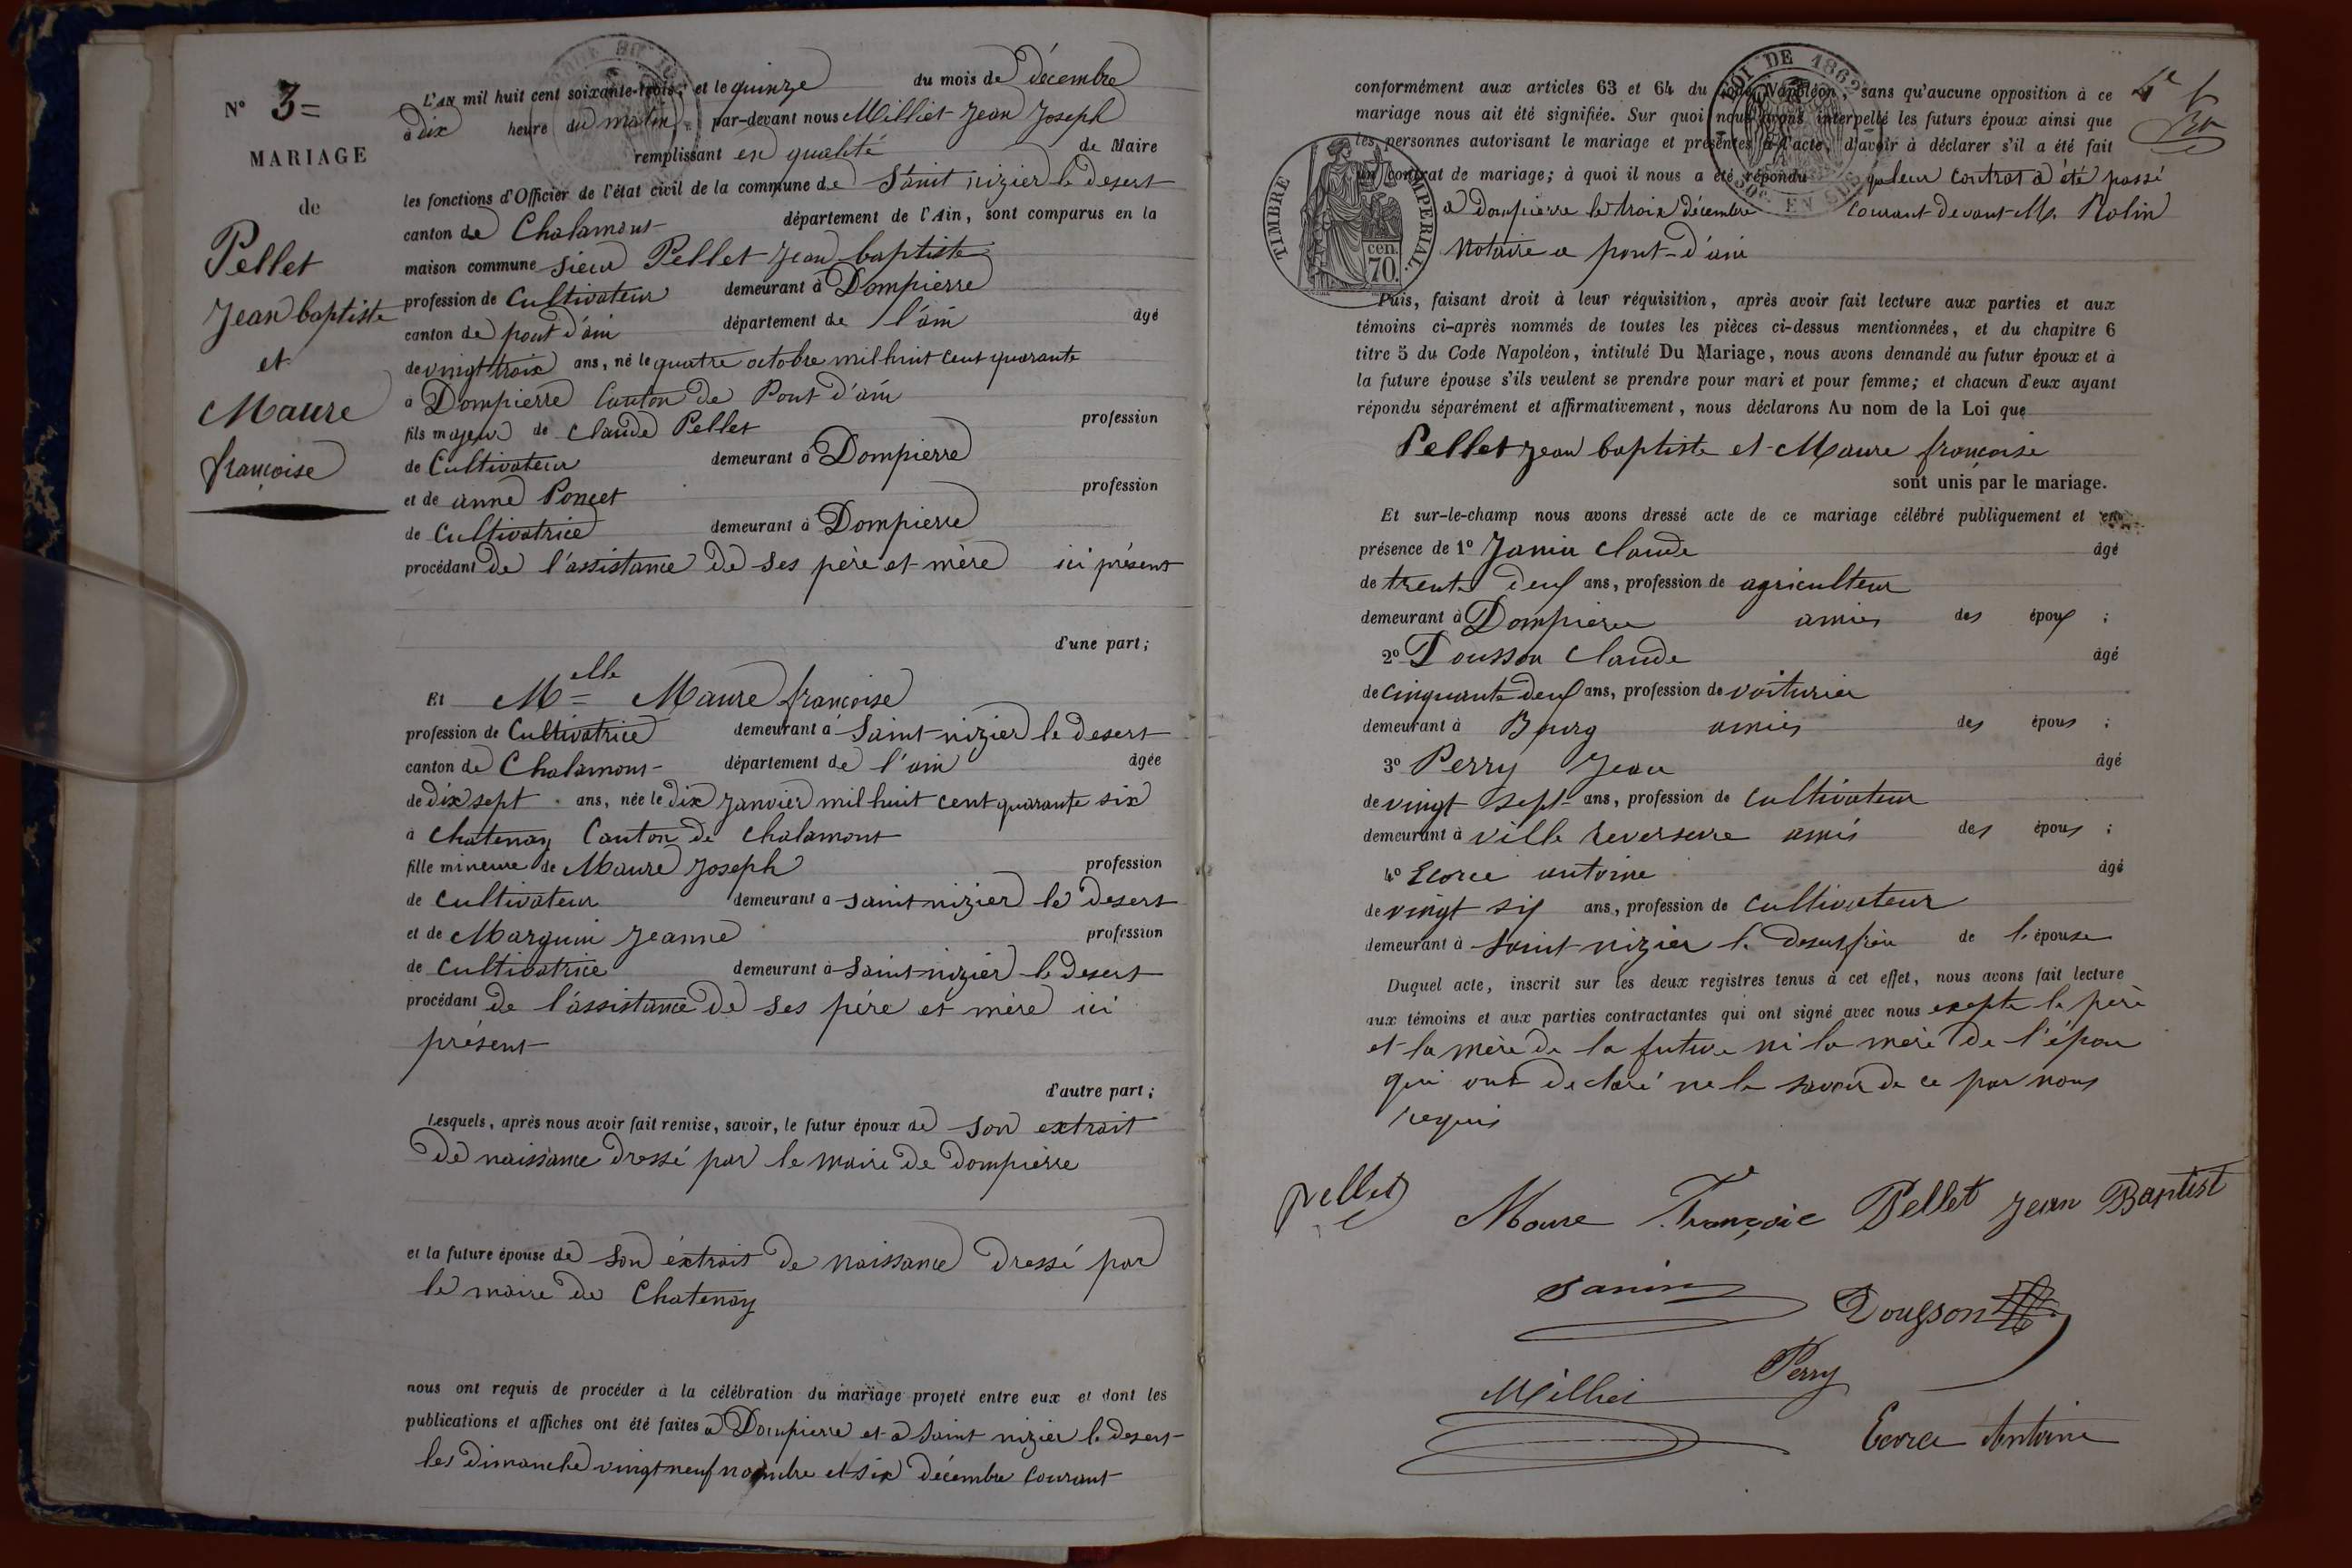 N° 3=
MARIAGE
de
Pellet
Jean baptiste
et
Maure
françoise
L'AN mil huit cent soixante-trois, et le quinze du mois de décembre
à dix heure du matin, par-devant nous Milliet Jean Joseph
remplissant en qualité de Maire
les fonctions d'Officier de l'état civil de la commune de Saint nizier le desert
canton de Chalamont département de l'Ain, sont comparus en la
maison commune sieur Pellet Jean baptiste
profession de Cultivateur demeurant à Dompierre
canton de pont d'ain département de l'ain âgé
de vingt trois ans, né le quatre octobre mil huit cent quarante
à Dompierre Canton de Pont d'ain
fils majeur de Claude Pellet profession
de Cultivateur demeurant à Dompierre
et de anne Poncet profession
de Cultivatrice demeurant à Dompierre
procédant de l'assistance de ses père et mère ici présent
d'une part;
Et Melle = Maure françoise
profession de Cultivatrice demeurant à Saint-nizier le desert
canton de Chalamont département de l'ain âgée
de dix sept ans, née le dix Janvier mil huit cent quarante six
à Chatenay Canton de Chalamont
fille mineure de Maure Joseph profession
de Cultivateur demeurant à saint-nizier le desert
et de Marguin Jeanne profession
de Cultivatrice demeurant à saint-nizier le desert
procédant de l'assistance de ses père et mère ici
présent
d'autre part;
Lesquels, après nous avoir fait remise, savoir, le futur époux de son extrait
de naissance dressé par le maire de Dompierre
et la future épouse de son extrait de naissance dressé par
le maire de Chatenay
nous ont requis de procéder à la célébration du mariage projeté entre eux et dont les
publications et affiches ont été faites à Dompierre et à saint nizier le desert
les dimanche vingt neuf novembre et six décembre courant
LOI DE 1862
50c EN SUS
TIMBRE IMPERIAL.
cen.
70.
conformément aux articles 63 et 64 du Code Napoléon, sans qu'aucune opposition à ce
mariage nous ait été signifiée. Sur quoi nous avons interpellé les futurs époux ainsi que
les personnes autorisant le mariage et présentes à l'acte, d'avoir à déclarer s'il a été fait
un contrat de mariage; à quoi il nous a été répondu que leur contrat à été passé
à dompierre le trois décembre Courant devant Me Rolin
Notaire a pont-d'ain
Puis, faisant droit à leur réquisition, après avoir fait lecture aux parties et aux
témoins ci-après nommés de toutes les pièces ci-dessus mentionnées, et du chapitre 6
titre 5 du Code Napoléon, intitulé Du Mariage, nous avons demandé au futur époux et à
la future épouse s'ils veulent se prendre pour mari et pour femme; et chacun d'eux ayant
répondu séparément et affirmativement, nous déclarons Au nom de la Loi que
Pellet Jean baptiste et Maure françoise
sont unis par le mariage.
Et sur-le-champ nous avons dressé acte de ce mariage célébré publiquement et en
présence de 1° Janin Claude âgé
de trente deux ans, profession de agriculteur
demeurant à Dompierre amies des époux ;
2° Dousson Claude âgé
de cinquante deux ans, profession de voiturier
demeurant à Bourg amies des épous ;
3° Perry Jean âgé
de vingt sept ans, profession de Cultivateur
demeurant à ville reversure amis des épous ;
4° Ecorce antoine âgé
de vingt six ans, profession de Cultivateur
demeurant à saint-nizier le desert frère de l'épouse
Duquel acte, inscrit sur les deux registres tenus à cet effet, nous avons fait lecture
aux témoins et aux parties contractantes qui ont signé avec nous exepte le père
et la mère de la future ni la mère de l'épou
qui ont declaré ne le savoir de ce par nous
requis
pellet Maure Françoie Pellet Jean Baptist
Janin
Dousson
Perry
Milliet
Ecorce Antoine